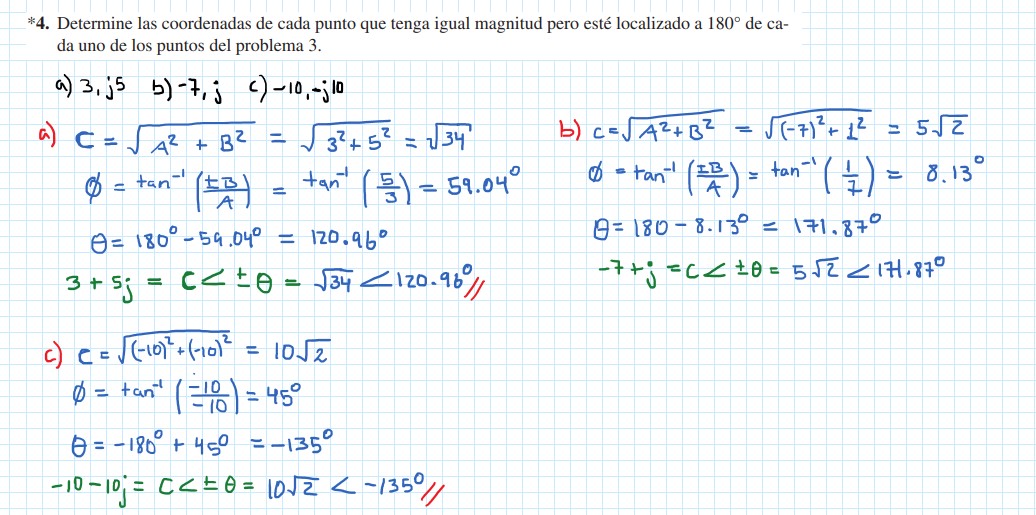 *4. Determine las coordenadas de cada punto que tenga igual magnitud pero esté localizado a 180° de ca-
da uno de los puntos del problema 3.
a) 3, j5 b) -7, j c) -10, -j10
a) C = √(A² + B²) = √(3² + 5²) = √34
ϕ = tan⁻¹ (±B/A) = tan⁻¹ (5/3) = 59.04°
θ = 180° - 59.04° = 120.96°
3 + 5j = C < ±θ = √34 < 120.96° //
b) C = √(A² + B²) = √((-7)² + 1²) = 5√2
ϕ = tan⁻¹ (±B/A) = tan⁻¹ (1/7) = 8.13°
θ = 180 - 8.13° = 171.87°
-7 + j = C < ±θ = 5√2 < 171.87°
c) C = √((-10)² + (-10)²) = 10√2
ϕ = tan⁻¹ (-10/-10) = 45°
θ = -180° + 45° = -135°
-10 - 10j = C < ±θ = 10√2 < -135° //